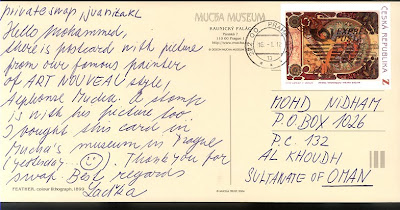 private swap, juanitakl
MUCHA MUSEUM
KAUNICKÝ PALÁC
Panská 7
110 00 Prague 1
Hello Mohammed,
there is postcard with picture
from our famous painter
of ART NOUVEAU style,
Alphonse Mucha. A stamp
is with his picture too.
I bought this card in
Mucha's museum in Prague
(yesterday... ). Thank you for
swap. Best regards
Laďka
FEATHER, colour lithograph, 1899
ČESKÁ REPUBLIKA
Z
MOHD NIDHAM
P.O BOX 1026
P.C. 132
AL KHOUDH
SULTANATE OF OMAN